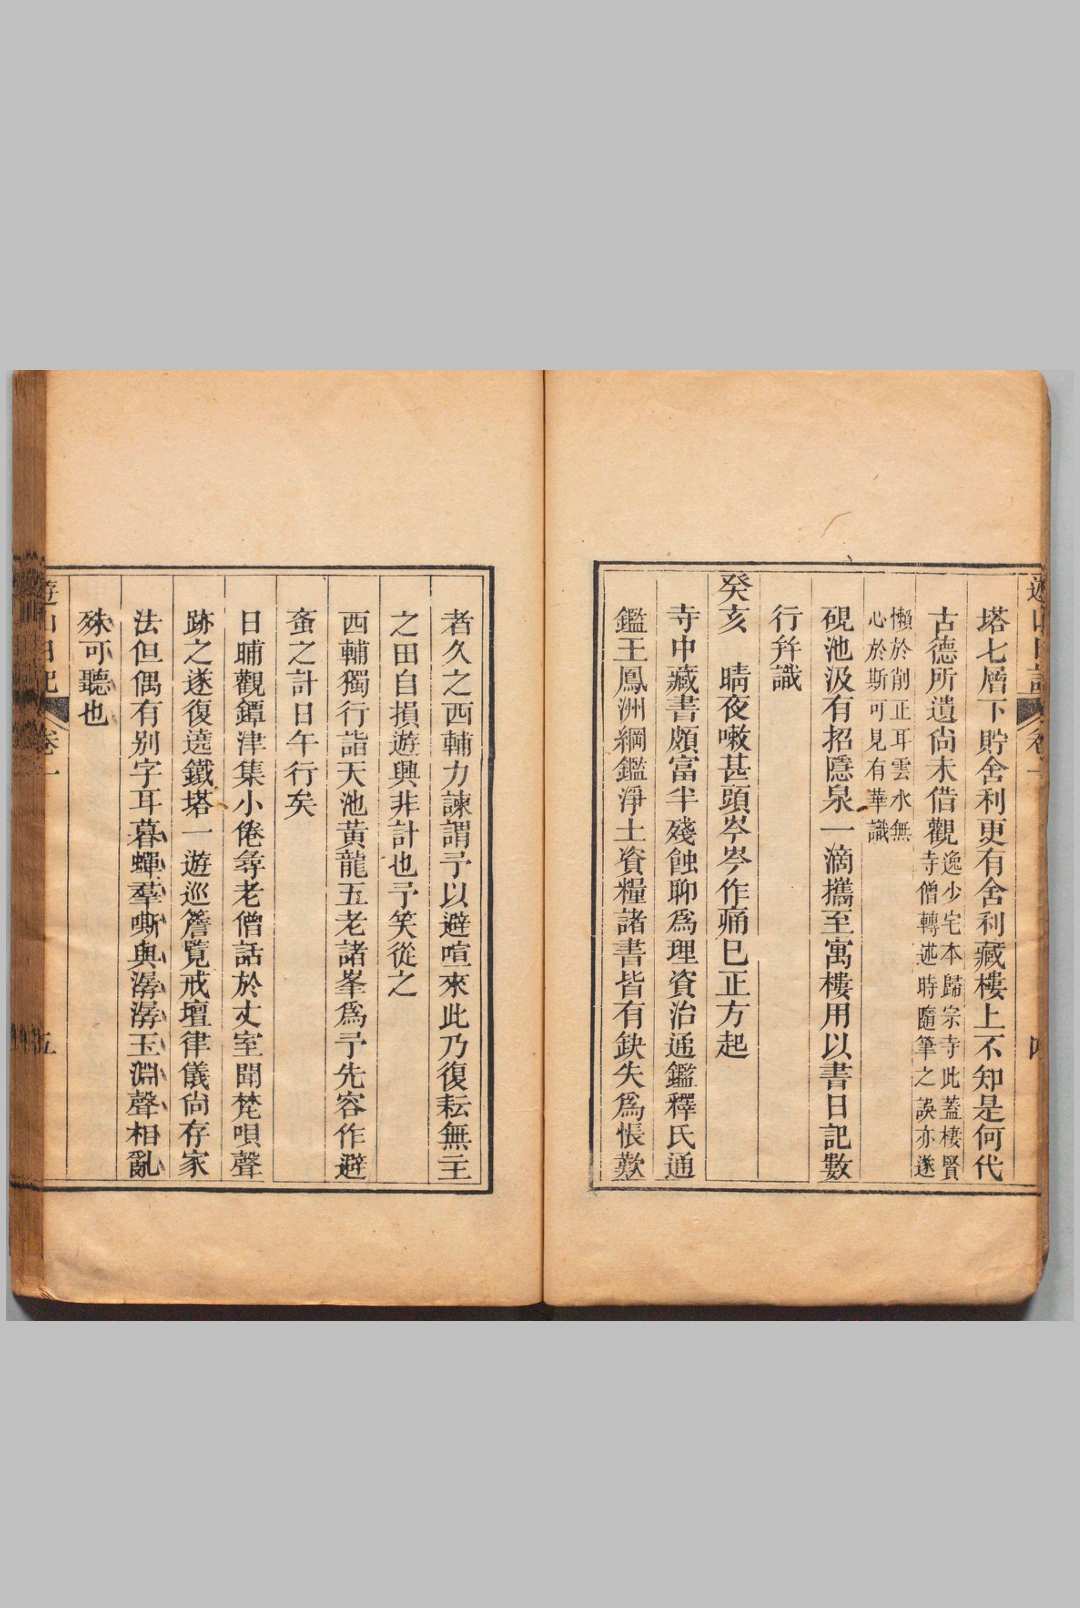 遊山日記 卷一 四
塔七層下貯舍利更有舍利藏樓上不知是何代
古德所遺尙未借觀逸少宅本歸宗寺此蓋棲賢
寺僧轉述時隨筆之誤亦遂
懶於削正耳雲水無
心於斯可見有華識
硯池汲有招隱泉一滴攜至寓樓用以書日記數
行幷識
癸亥　晴夜嗽甚頭岑岑作痛巳正方起
寺中藏書頗富半殘蝕聊爲理資治通鑑釋氏通
鑑王鳳洲綱鑑淨土資糧諸書皆有缺失爲悵歎
者久之西輔力諫謂予以避喧來此乃復耘無主
之田自損遊興非計也予笑從之
西輔獨行詣天池黃龍五老諸峯爲予先容作避
蚤之計日午行矣
日晡觀鐔津集小倦尋老僧話於丈室聞梵唄聲
跡之遂復遶鐵塔一遊巡簷覽戒壇律儀尙存家
法但偶有别字耳暮蟬羣嘶與潺潺玉淵聲相亂
殊可聽也
遊山日記 卷一 五